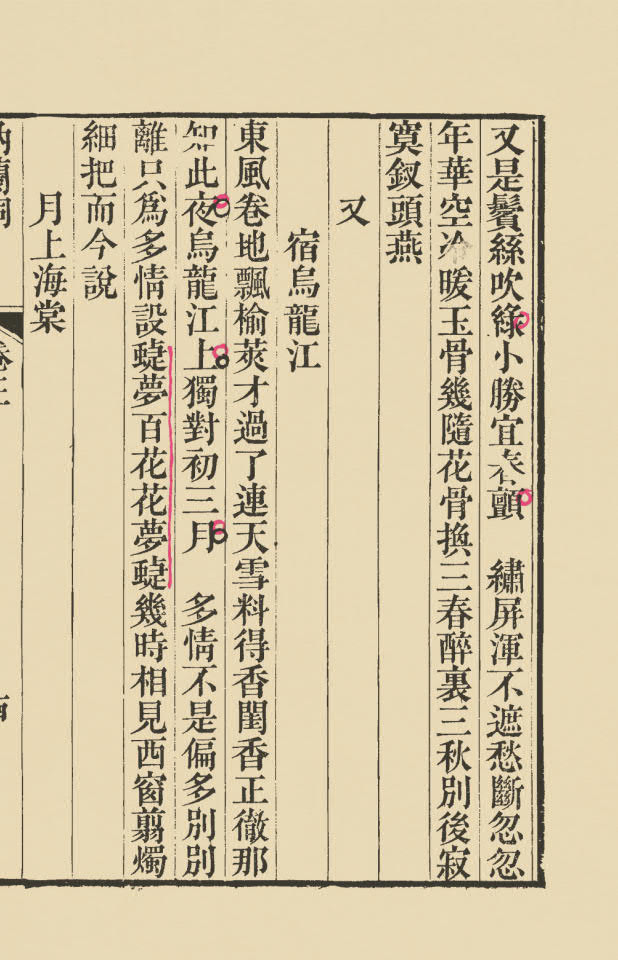 又是鬢絲吹綠小勝宜春顫　繡屏渾不遮愁斷忽忽
年華空冷暖玉骨幾隨花骨換三春醉裏三秋別後寂
寞釵頭燕
又
宿烏龍江
東風卷地飄榆莢才過了連天雪料得香閨香正徹那
知此夜烏龍江上獨對初三月　多情不是偏多別別
離只爲多情設蜨夢百花花夢蜨幾時相見西窗翦燭
細把而今說
月上海棠